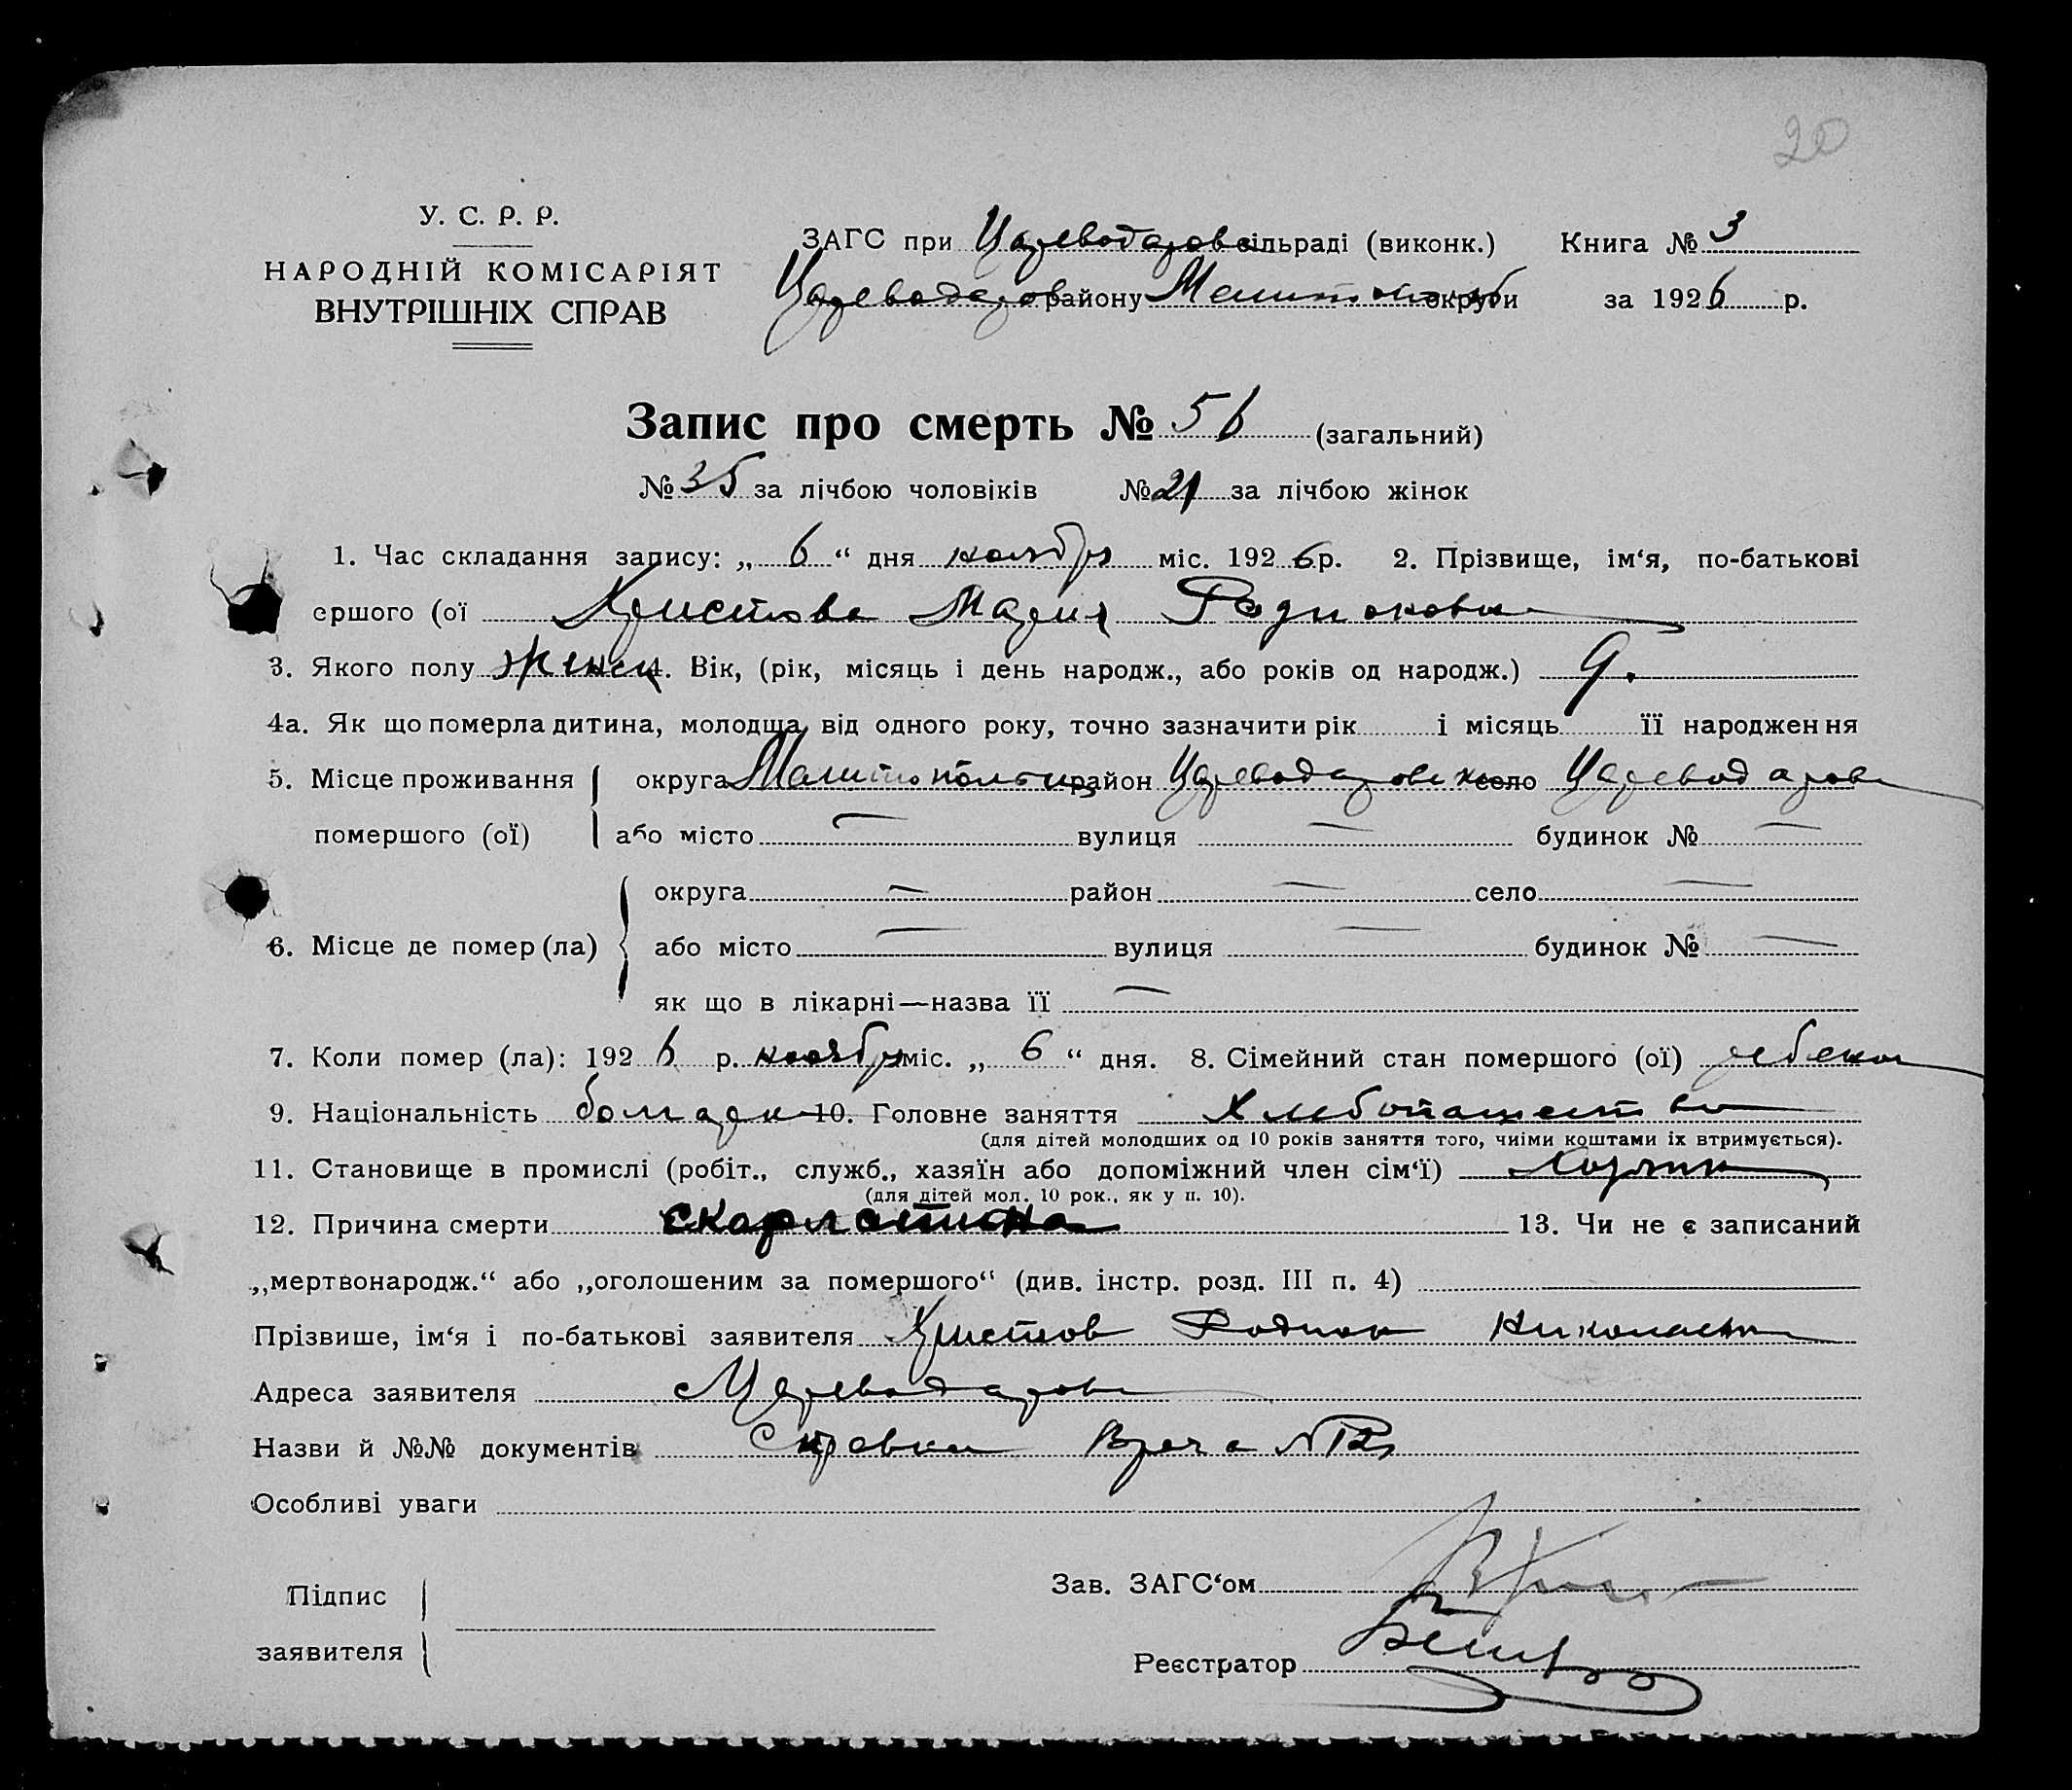 20
У. С. Р. Р.
НАРОДНІЙ КОМІСАРІЯТ
ВНУТРІШНІХ СПРАВ
ЗАГС при Цареводаров сільраді (виконк.) Книга № 3
Цареводаров району Мелитопол округи за 1926 р.
Запис про смерть № 56 (загальний)
№ 35 за лічбою чоловіків № 21 за лічбою жінок
1. Час складання запису: „ 6 “ дня ноября міс. 1926 р. 2. Прізвище, ім‘я, по-батькові
ершого (ої Христова Мария Родионовна
3. Якого полу женск 4. Вік, (рік, місяць і день народж., або років од народж.) 9.
4а. Як що померла дитина, молодща від одного року, точно зазначити рік і місяць її народження
5. Місце проживання округа Мелитопольск район Цареводаровск село Цареводаровка
помершого (ої) або місто — вулиця — будинок № —
округа — район — село —
6. Місце де помер (ла) або місто — вулиця — будинок № —
як що в лікарні—назва її —
7. Коли помер (ла): 1926 р. ноября міс. „ 6 “ дня. 8. Сімейний стан помершого (ої) ребенок
9. Національність болгарк 10. Головне заняття хлебопашество
(для дітей молодших од 10 років заняття того, чиіми коштами іх втримується).
11. Становище в промислі (робіт., служб., хазяїн або допоміжний член сім‘ї)
(для дітей мол. 10 рок., як у п. 10).
12. Причина смерти скарлатина 13. Чи не є записаний
„мертвонародж.“ або „оголошеним за помершого“ (див. інстр. розд. III п. 4)
Прізвише, ім‘я і по-батькові заявителя Христов Родион Николаевич
Адреса заявителя Цареводаровка
Назви й №№ документів Справка Врача №
Особливі уваги
Зав. ЗАГС‘ом
Підпис
заявителя
Реєстратор